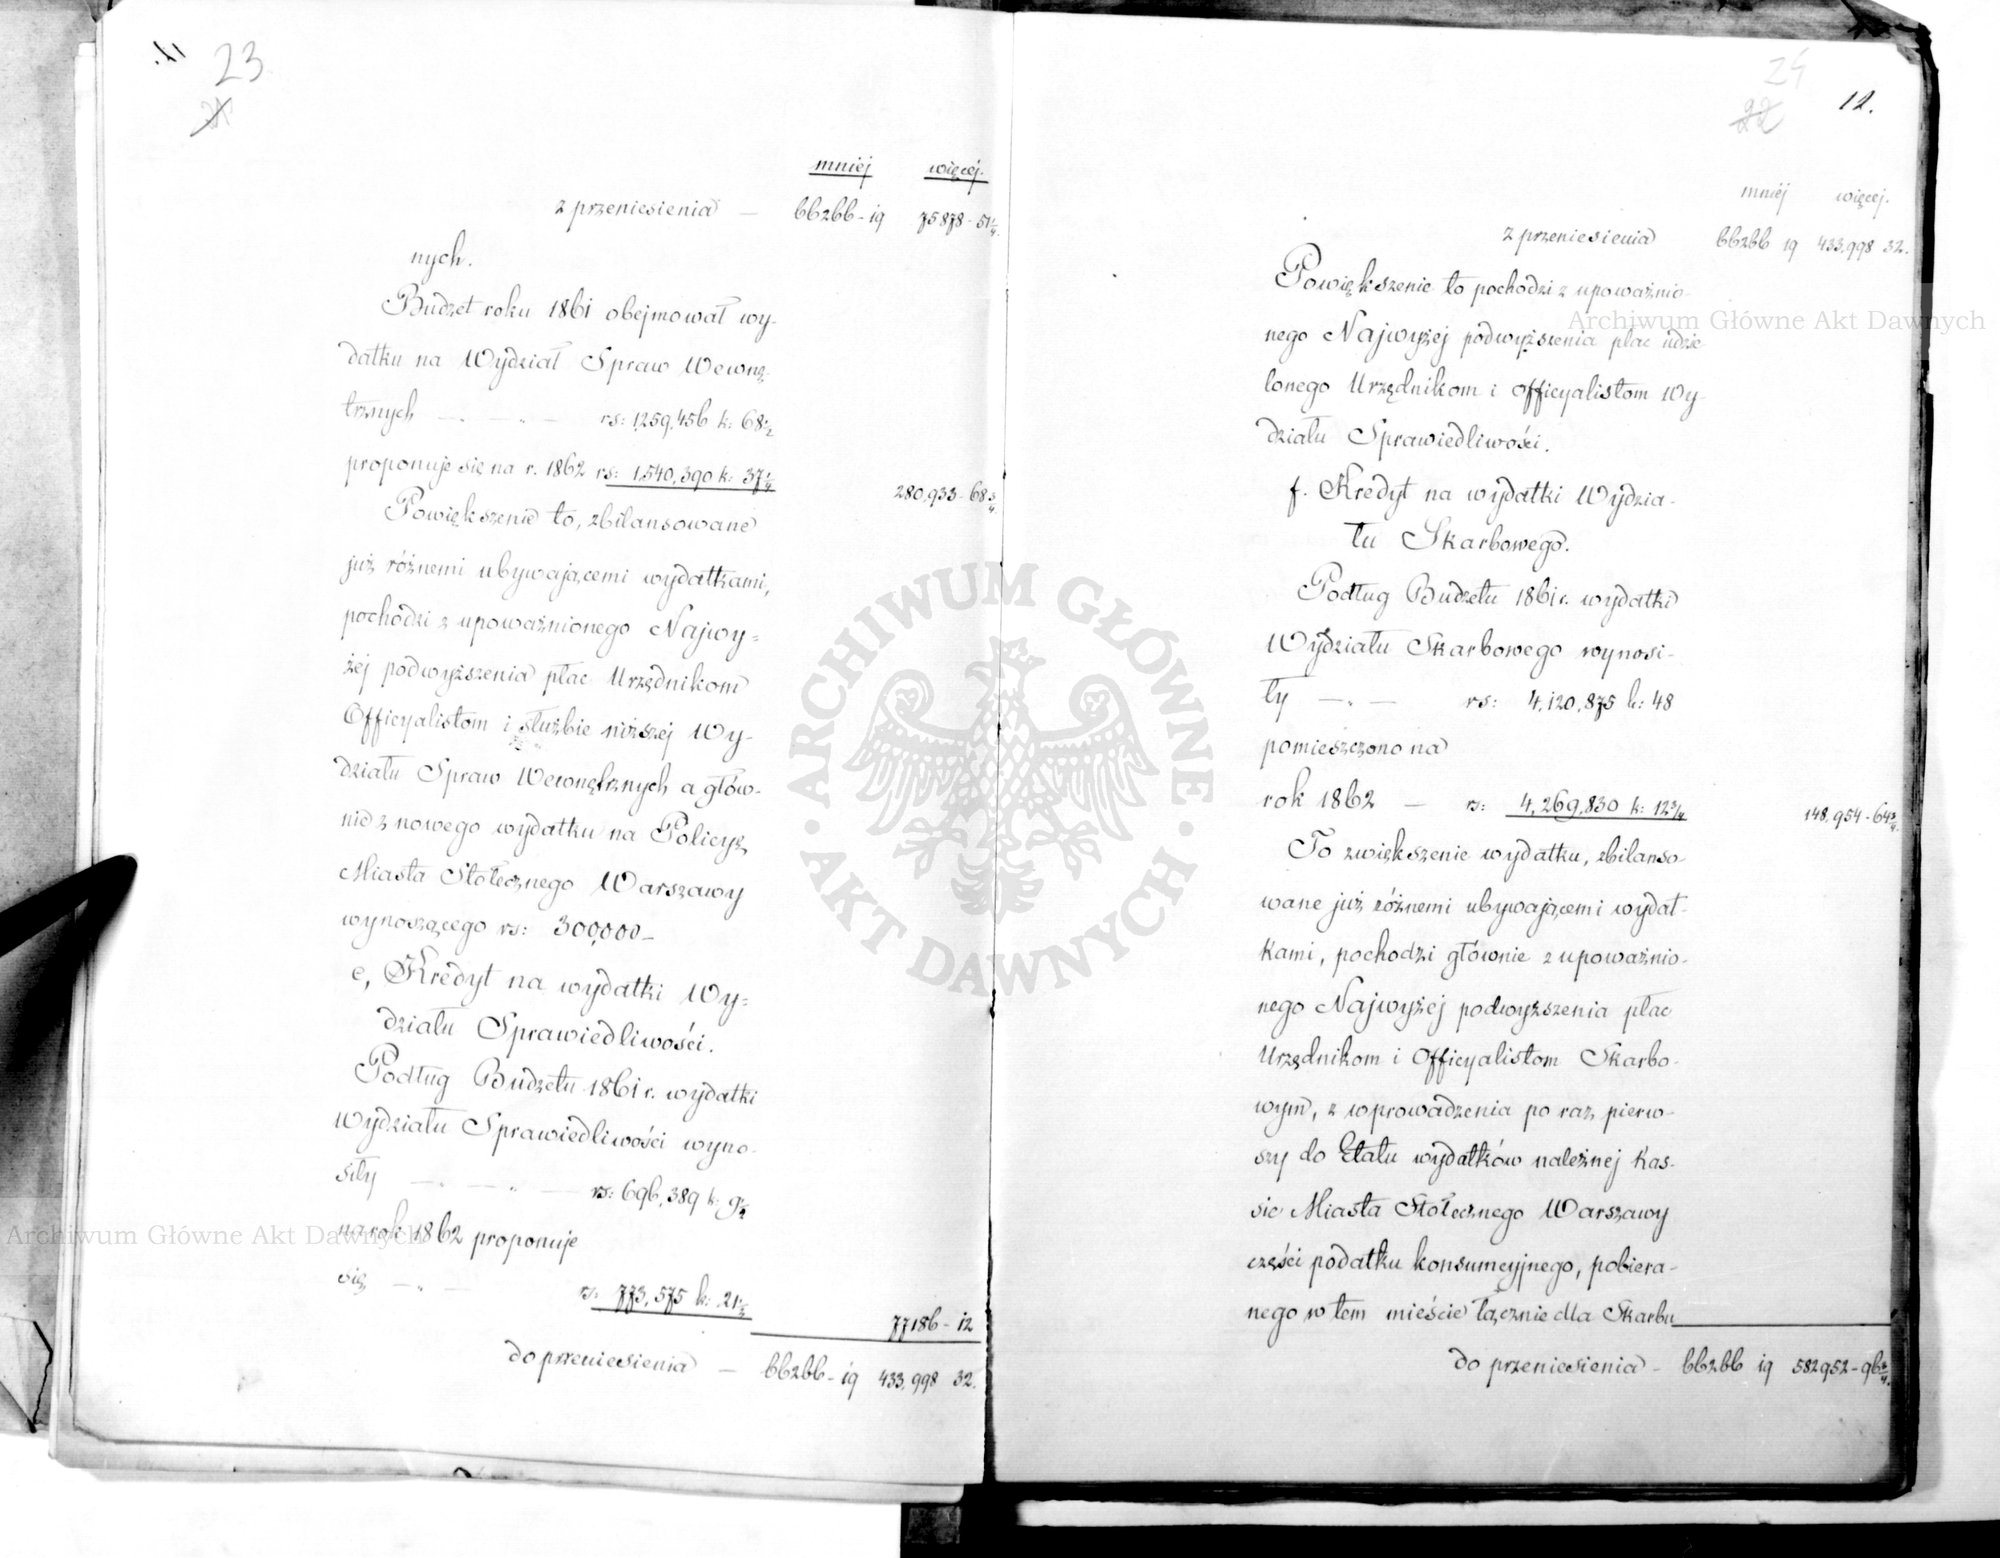 23
mniej więcej.
z przeniesienia — 66266 - 19 75878 - 51 1/4
nych.
Budżet roku 1861 obejmował wy-
datku na Wydział Spraw Wewnę-
trznych — „ — „ — rs: 1,259,456 k: 68 1/2
proponuje się na r. 1862 rs: 1,540,390 k: 37 1/4
280,933 - 68 3/4
Powiększenie to, zbilansowane
już różnemi ubywającemi wydatkami,
pochodzi z upoważnionego Najwy=
żej podwyższenia płac Urzędnikom
Officyalistom i służbie niższej Wy-
działu Spraw Wewnętrznych a głów-
nie z nowego wydatku na Policyę
Miasta Stołecznego Warszawy
wynoszącego rs: 300,000 —
e, Kredyt na wydatki Wy=
działu Sprawiedliwości.
Podług Budżetu 1861 r. wydatki
Wydziału Sprawiedliwości wyno-
siły — „ — „ — rs: 696,389 k: 9 1/2
na rok 1862 proponuje
się — „ — rs: 773,575 k: 21 1/2
77186 - 12
do przeniesienia — 66266 - 19 433,998 32.
24
22
12.
mniej więcej.
z przeniesienia 66266 19 433,998 32.
Powiększenie to pochodzi z upoważnio-
nego Najwyżej podwyższenia płac udzie-
lonego Urzędnikom i Officyalistom Wy-
działu Sprawiedliwości.
f. Kredyt na wydatki Wydzia-
łu Skarbowego.
Podług Budżetu 1861 r. wydatki
Wydziału Skarbowego wynosi-
ły — „ — rs: 4,120,875 k: 48
pomieszczono na
rok 1862 — rs: 4,269,830 k: 12 3/4
148,954 - 64 3/4
To zwiększenie wydatku, zbilanso-
wane już różnemi ubywającemi wydat-
kami, pochodzi głównie z upoważnio-
nego Najwyżej podwyższenia płac
Urzędnikom i Officyalistom Skarbo-
wym, z wprowadzenia po raz pierw-
szy do Etatu wydatków należnej Kas-
sie Miasta Stołecznego Warszawy
części podatku konsumcyjnego, pobiera-
nego w tem mieście łącznie dla Skarbu
do przeniesienia - 66266 19 582952 - 96 3/4.
Archiwum Główne Akt Dawnych
ARCHIWUM GŁÓWNE · AKT DAWNYCH ·
Archiwum Główne Akt Dawnych